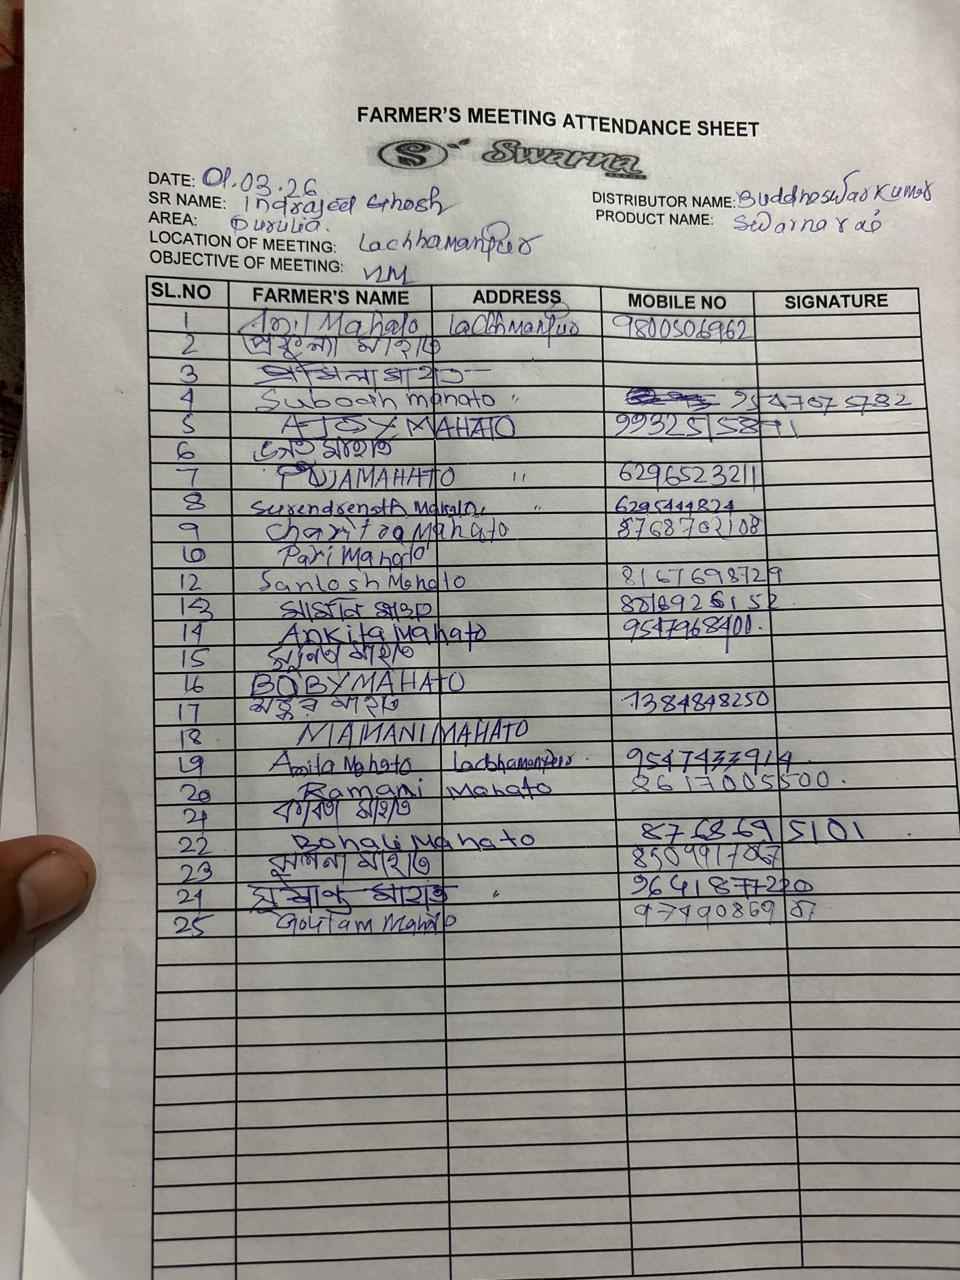 FARMER'S MEETING ATTENDANCE SHEET
S Swarna
DATE: 01.03.26
SR NAME: Indrajeet Ghosh
DISTRIBUTOR NAME: Buddheswar Kumar
AREA: Purulia.
PRODUCT NAME: Swarna
LOCATION OF MEETING: Lachhamanpur
OBJECTIVE OF MEETING: NM
SL.NO FARMER'S NAME ADDRESS MOBILE NO SIGNATURE
1 Anil Mahato Lachhmanpur 9800506962
2 প্রফুল্ল মাহাত
3 প্রমিলা মাহাত
4 Subodh mahato " 9547075782
5 AJOY MAHATO 9932515871
6 মাহাত
7 PUJA MAHATO " 6296523211
8 Surendrenath Mahato " 6295444824
9 Charitra Mahato 8768702108
10 Pari Mahato
12 Santosh Mahato 8167698729
13 মাহাত
14 Ankita Mahato 9547968400.
15 মাহাত
16 BOBY MAHATO
17 মাহাত 7384848250
18 MAMANI MAHATO
19 Amila Mahato Lachhamanpur. 9547433914
20 Ramani Mahato 8617005500.
21 মাহাত
22 Mahato 8768695101
23 মাহাত
24 মাহাত " 9641877220
25 Goutam Mahato